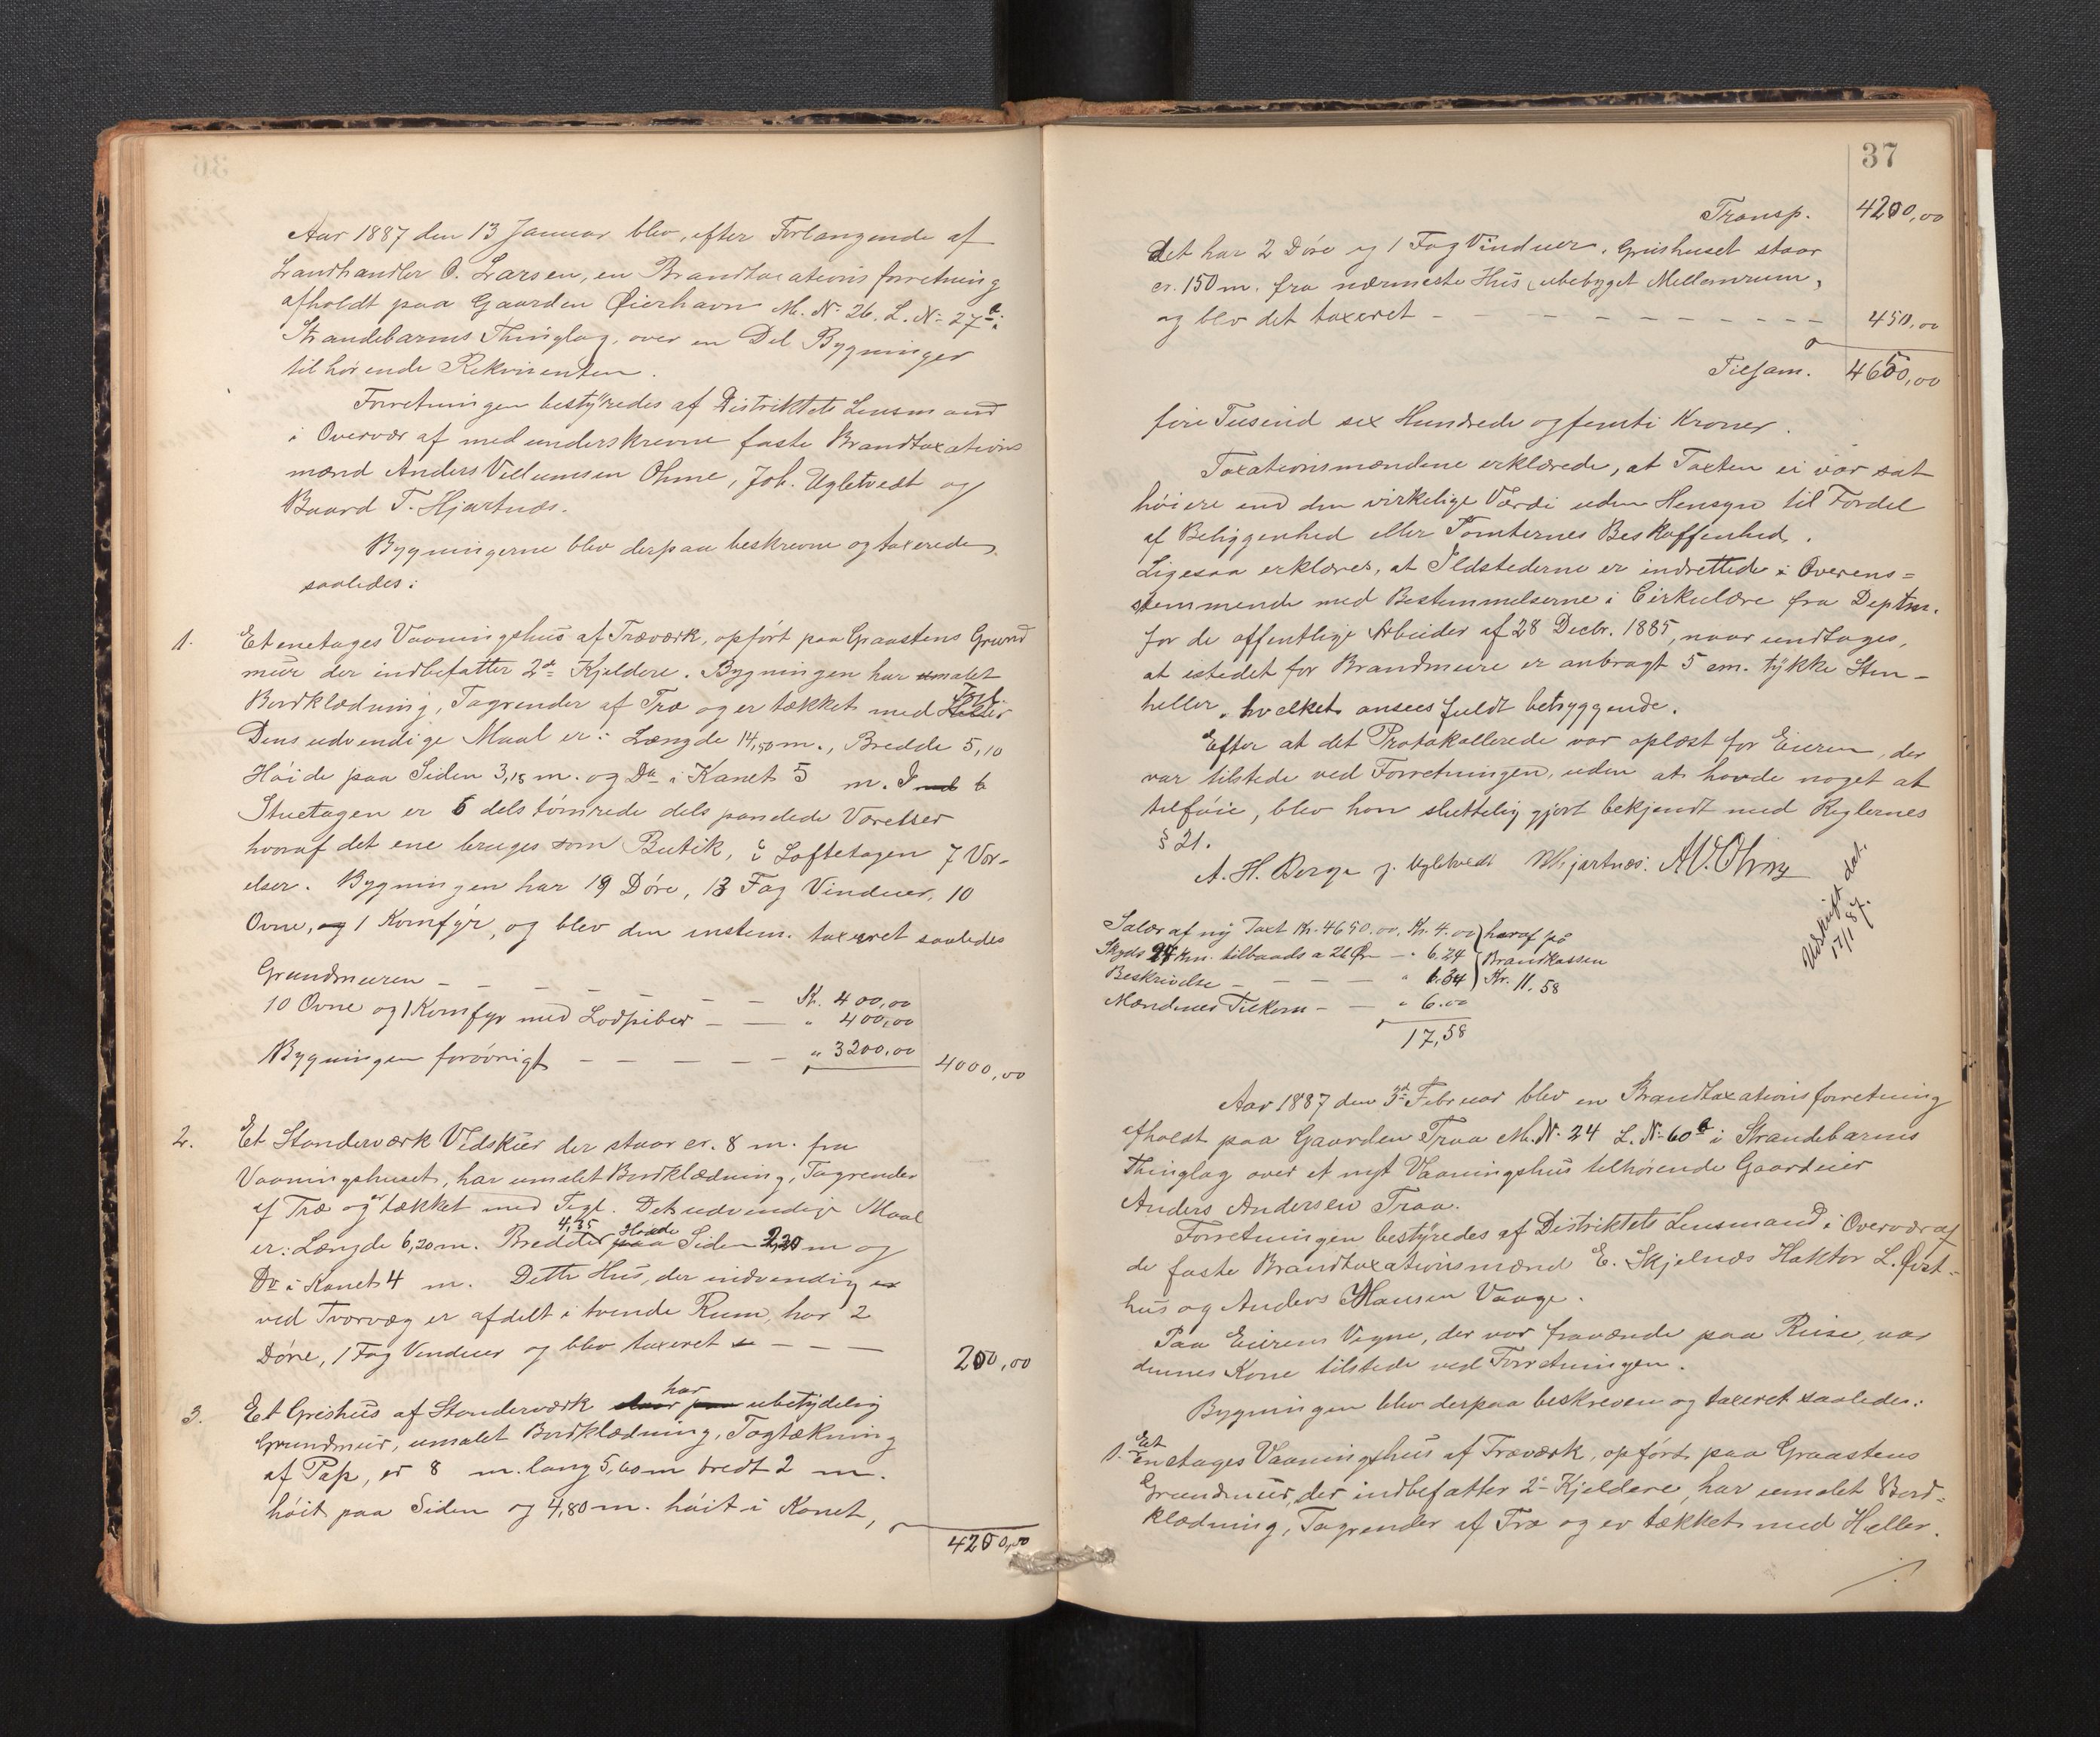 Aar 1887 den 13 Januar blev, efter Forlangende af
Landhandler O. Larsen, en Brandtaxationsforretning
afholdt paa Gaarden Øierhavn M. No 26. L. No 27b i
Strandebarms Thinglag, over en Del Bygninger
tilhørende Rekvirenten.
Forretningen bestyredes af Distriktets Lensmand
i Overvær af medunderskrevne faste Brandtaxations
mænd Anders Villumsen Ohme, Joh. Ugletvedt og
Baard T. Hjartnæs.
Bygningerne blev derpaa beskrevne og taxerede
saaledes:
1. Et enetages Vaaningshus af Træværk, opført paa Graastens Grund
mur der indbefatter 2de Kjeldere. Bygningen har umalet
Bordklædning, Tagrender af Træ og er tækket med Tegl
Dens udvendige Maal er: Længde 14,50 m., Bredde 5,10
Høide paa Siden 3,15 m. og Do i Kanet 5 m. I
Stuetagen er 6 dels tømrede dels panelede Værelser
hvoraf det ene bruges som Butik, i Loftetagen 7 Vær-
elser. Bygningen har 19 Døre, 13 Fag Vinduer, 10
Ovne, og 1 Komfyr, og blev den enstem. taxeret saaledes
Grundmuren – – – – – Kr. 400,00
10 Ovne og 1 Komfyr med Lodpiber – – " 400,00
Bygningen forøvrigt – – – – – " 3200,00 4000,00
2. Et Standerværk Vedskur der staar cr. 8 m. fra
Vaaningshuset, har umalet Bordklædning, Tagrender
af Træ og er tækket med Tegl. Det udvendige Maal
er: Længde 6,20 m. Bredde 4,35 Høide paa Siden 2,20 m og
Do i Kanet 4 m. Dette Hus, der indvendig
ved Tværvæg er afdelt i tvende Rum, har 2
Døre, 1 Fag Vinduer og blev taxeret – – – 200,00
3. Et Grishus af Standerværk har ubetydelig
Grundmur, umalet Bordklædning, Tagtækning
af Pap, er 8 m. lang 5,60 m bredt 2 m.
høit paa Siden og 4,80 m. høit i Kanet,
4200,00
37
Transp. 4200,00
det har 2 Døre og 1 Fag Vinduer. Grishuset staar
cr. 150 m. fra nærmeste Hus, ubebygget Mellemrum,
og blev det taxeret – – – – – – – – – 450,00
Tilsam. 4650,00
fire Tusind sex Hundrede og femti Kroner.
Taxationsmændene erklærede, at Taxten ei var sat
høiere end den virkelige Værdi uden Hensyn til Fordel
af Beliggenhed eller Tomternes Beskaffenhed.
Ligesaa erklæres, at Ildstederne er indrettede i Overens=
stemmende med Bestemmelserne i Cirkulære fra Deptm.
for de offentlige Arbeider af 28 Decbr. 1885, naar undtages,
at istedet for Brandmure er anbragt 5 cm. tykke Sten-
heller, hvilket ansees fuldt betryggende.
Efter at det Protokollerede var oplæst for Eieren, der
var tilstede ved Forretningen, uden at havde noget at
tilføie, blev han sluttelig gjort bekjendt med Reglernes
§ 21.
A. H. Berge J. Ugletvedt Hjartnæs. AVOhme
Udskrift dat.
17/1 87.
Salær af ny Taxt Kr. 4650.00. Kr. 4.00 heraf på
Skyds 24 km. tilbaads a 26 Øre – " 6.24 Brandkassen
Beskrivelse – – – – " 1.34 Kr. 11.58
Mændenes Tilkom – – " 6.00
17,58
Aar 1887 den 3de Februar blev en Brandtaxationsforretning
afholdt paa Gaarden Traa M. No. 24 L. No. 60b i Strandebarms
Thinglag over et nyt Vaaningshus tilhørende Gaardeier
Anders Andersen Traa.
Forretningen bestyredes af Distriktets Lensmand i Overvær af
de faste Brandtaxationsmænd E. Skjelnæs Haktor L. Øvst-
hus og Anders Hansen Vaage.
Paa Eierens Vegne, der var fraværende paa Reise, var
dennes Kone tilstede ved Forretningen.
Bygningen blev derpaa beskreven og taxeret saaledes:
1. Et Enetages Vaaningshus af Træværk, opført paa Graastens
Grundmur, der indbefatter 2de Kjeldere, har umalet Bord-
klædning, Tagrender af Træ og er tækket med Heller.